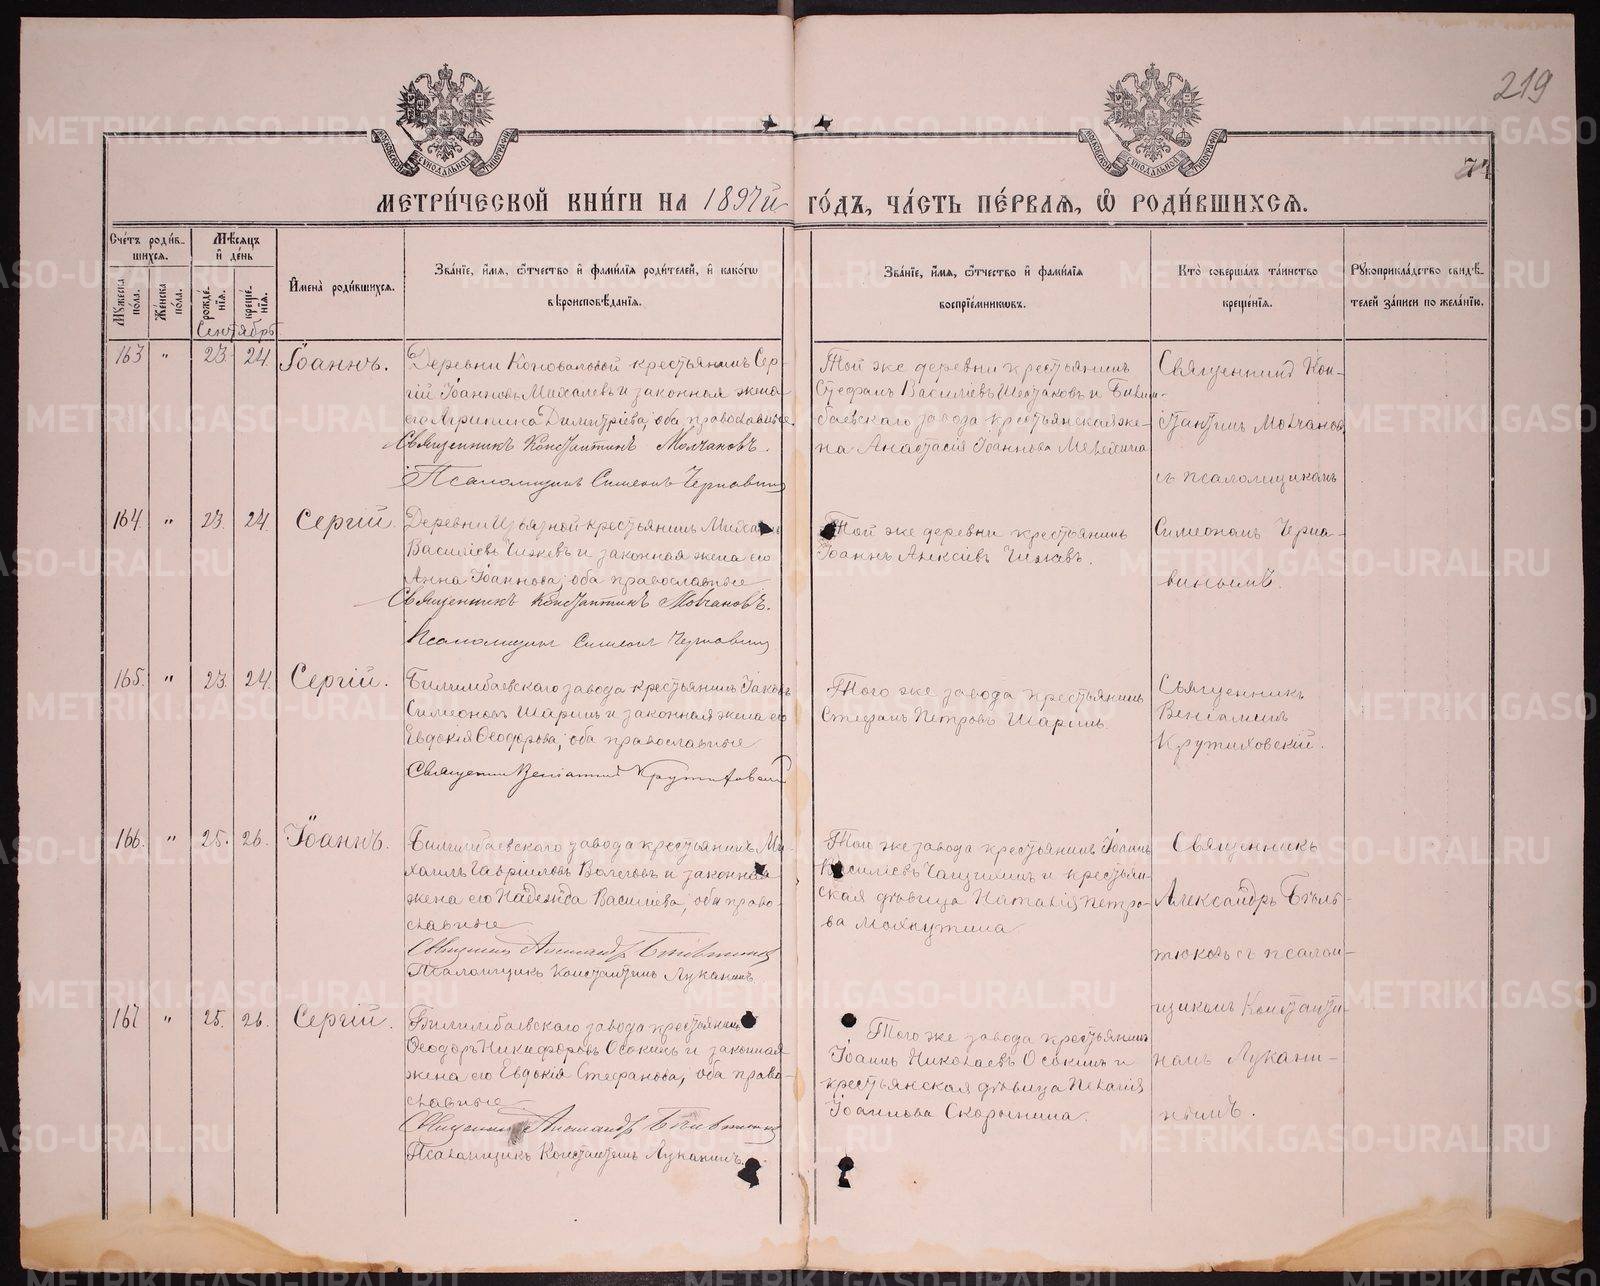 219
74
МЕТРИ́ЧЕСКОЙ КНИ́ГИ НА 1897й ГО́ДЪ, ЧА́СТЬ ПЕ́РВАЯ, Ѿ РОДИ́ВШИХСЯ.
Сче́тъ роди́вшихся.
Му́жеска по́ла.
Же́нска по́ла.
Мѣ́сяцъ и де́нь
рожде́нїя.
креще́нїя.
Сентябрь
И҆мена̀ роди́вшихся.
Зва́нїе, и҆́мя, ѻ҆́тчество и҆ фами́лїя роди́телей, и҆ како́гѡ
вѣроисповѣ́данїя.
Зва́нїе, и҆́мя, ѻ҆́тчество и҆ фами́лїя
воспрїе́мникѡвъ.
Кто̀ соверша́лъ та́инство
креще́нїя.
Рꙋкоприкла́дство свидѣ́-
телей за́писи по жела́нїю.
163 " 23. 24. Іоаннъ.
Деревни Коноваловой крестьянинъ Сер-
гій Іоанновъ Михалевъ и законная жена
его Агрипина Димитріева, оба православные.
Священникъ Константинъ Молчановъ.
Псаломщикъ Симеонъ Чернавинъ
Той же деревни крестьянинъ
Стефанъ Василіевъ Шестаковъ и Билим-
баевскаго завода крестьянская же-
на Анастасія Іоаннова
Священникъ Кон-
стантинъ Молчановъ
съ псаломщикомъ
164. " 23. 24. Сергій.
Деревни крестьянинъ Михаилъ
Василіевъ Чижевъ и законная жена его
Анна Іоаннова, оба православные
Священникъ Константинъ Молчановъ.
Псаломщикъ Симеонъ Чернавинъ
Той же деревни крестьянинъ
Іоаннъ Алексіевъ Чижевъ.
Симеономъ Черна-
винымъ.
165. " 23. 24. Сергій.
Билимбаевскаго завода крестьянинъ Іаковъ
Симеоновъ Шаринъ и законная жена его
Евдокія Ѳеодорова, оба православные
Священникъ Веніаминъ Крутиховскій
Того же завода крестьянинъ
Стефанъ Петровъ Шаринъ.
Священникъ
Веніаминъ
Крутиховскій.
166. " 25. 26. Іоаннъ.
Билимбаевскаго завода крестьянинъ Ми-
хаилъ Гавріиловъ Волеговъ и законная
жена его Надежда Василіева, оба право-
славные
Священникъ Александръ Бѣльтюковъ
Псаломщикъ Константинъ Луканинъ.
Того же завода крестьянинъ Іоаннъ
Василіевъ и крестьян-
ская дѣвица Наталія Петро-
ва
Священникъ
Александръ Бѣль-
тюковъ съ псалом-
щикомъ Константи-
номъ Лукани-
нымъ.
167 " 25. 26. Сергій.
Билимбаевскаго завода крестьянинъ
Ѳеодоръ Никифоровъ Осокинъ и законная
жена его Евдокія Стефанова, оба право-
славные
Священникъ Александръ Бѣльтюковъ
Псаломщикъ Константинъ Луканинъ.
Того же завода крестьянинъ
Іоаннъ Николаевъ Осокинъ и
крестьянская дѣвица Пелагія
Іоаннова Скорынина.